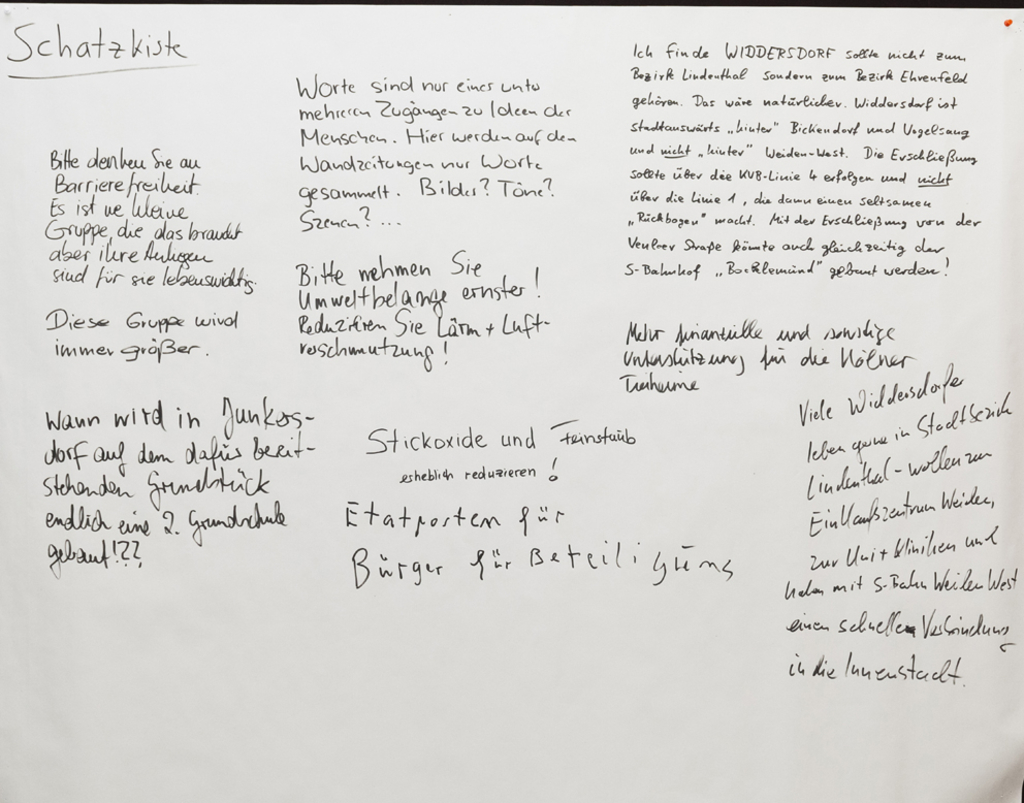 Schatzkiste
Bitte denken Sie an
Barrierefreiheit.
Es ist ne kleine
Gruppe, die das braucht
aber ihre Anliegen
sind für sie lebenswichtig.
Diese Gruppe wird
immer größer.
Wann wird in Junkers-
dorf auf dem dafür bereit-
stehenden Grundstück
endlich eine 2. Grundschule
gebaut!??
Worte sind nur eines unter
mehreren Zugängen zu Ideen der
Menschen. Hier werden auf den
Wandzeitungen nur Worte
gesammelt. Bilder? Töne?
Szenen? ...
Bitte nehmen Sie
Umweltbelange ernster!
Reduzieren Sie Lärm + Luft-
verschmutzung!
Stickoxide und Feinstaub
erheblich reduzieren!
Etatposten für
Bürger für Beteiligung
Ich finde WIDDERSDORF sollte nicht zum
Bezirk Lindenthal sondern zum Bezirk Ehrenfeld
gehören. Das wäre natürlicher. Widdersdorf ist
stadtauswärts „hinter" Bickendorf und Vogelsang
und nicht „hinter" Weiden-West. Die Erschließung
sollte über die KVB-Linie 4 erfolgen und nicht
über die Linie 1, die dann einen seltsamen
„Rückbogen" macht. Mit der Erschließung von der
Venloer Straße könnte auch gleichzeitig der
S-Bahnhof „Bocklemünd" gebaut werden!
Mehr finanzielle und sonstige
Unterstützung für die Kölner
Tierheime
Viele Widdersdorfer
leben gerne in Stadtbezirk
Lindenthal - wollen zum
Einkaufszentrum Weiden,
zur Uni + Kliniken und
haben mit S-Bahn Weiden West
einen schnellen Verbindung
in die Innenstadt.